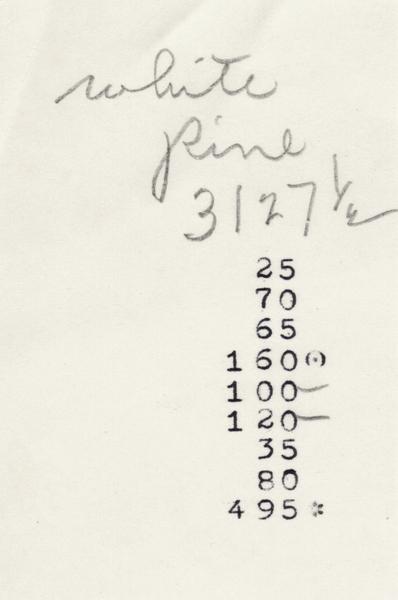 white
pine
3127 1/2
25
70
65
160 (·)
100
120
35
80
495 *